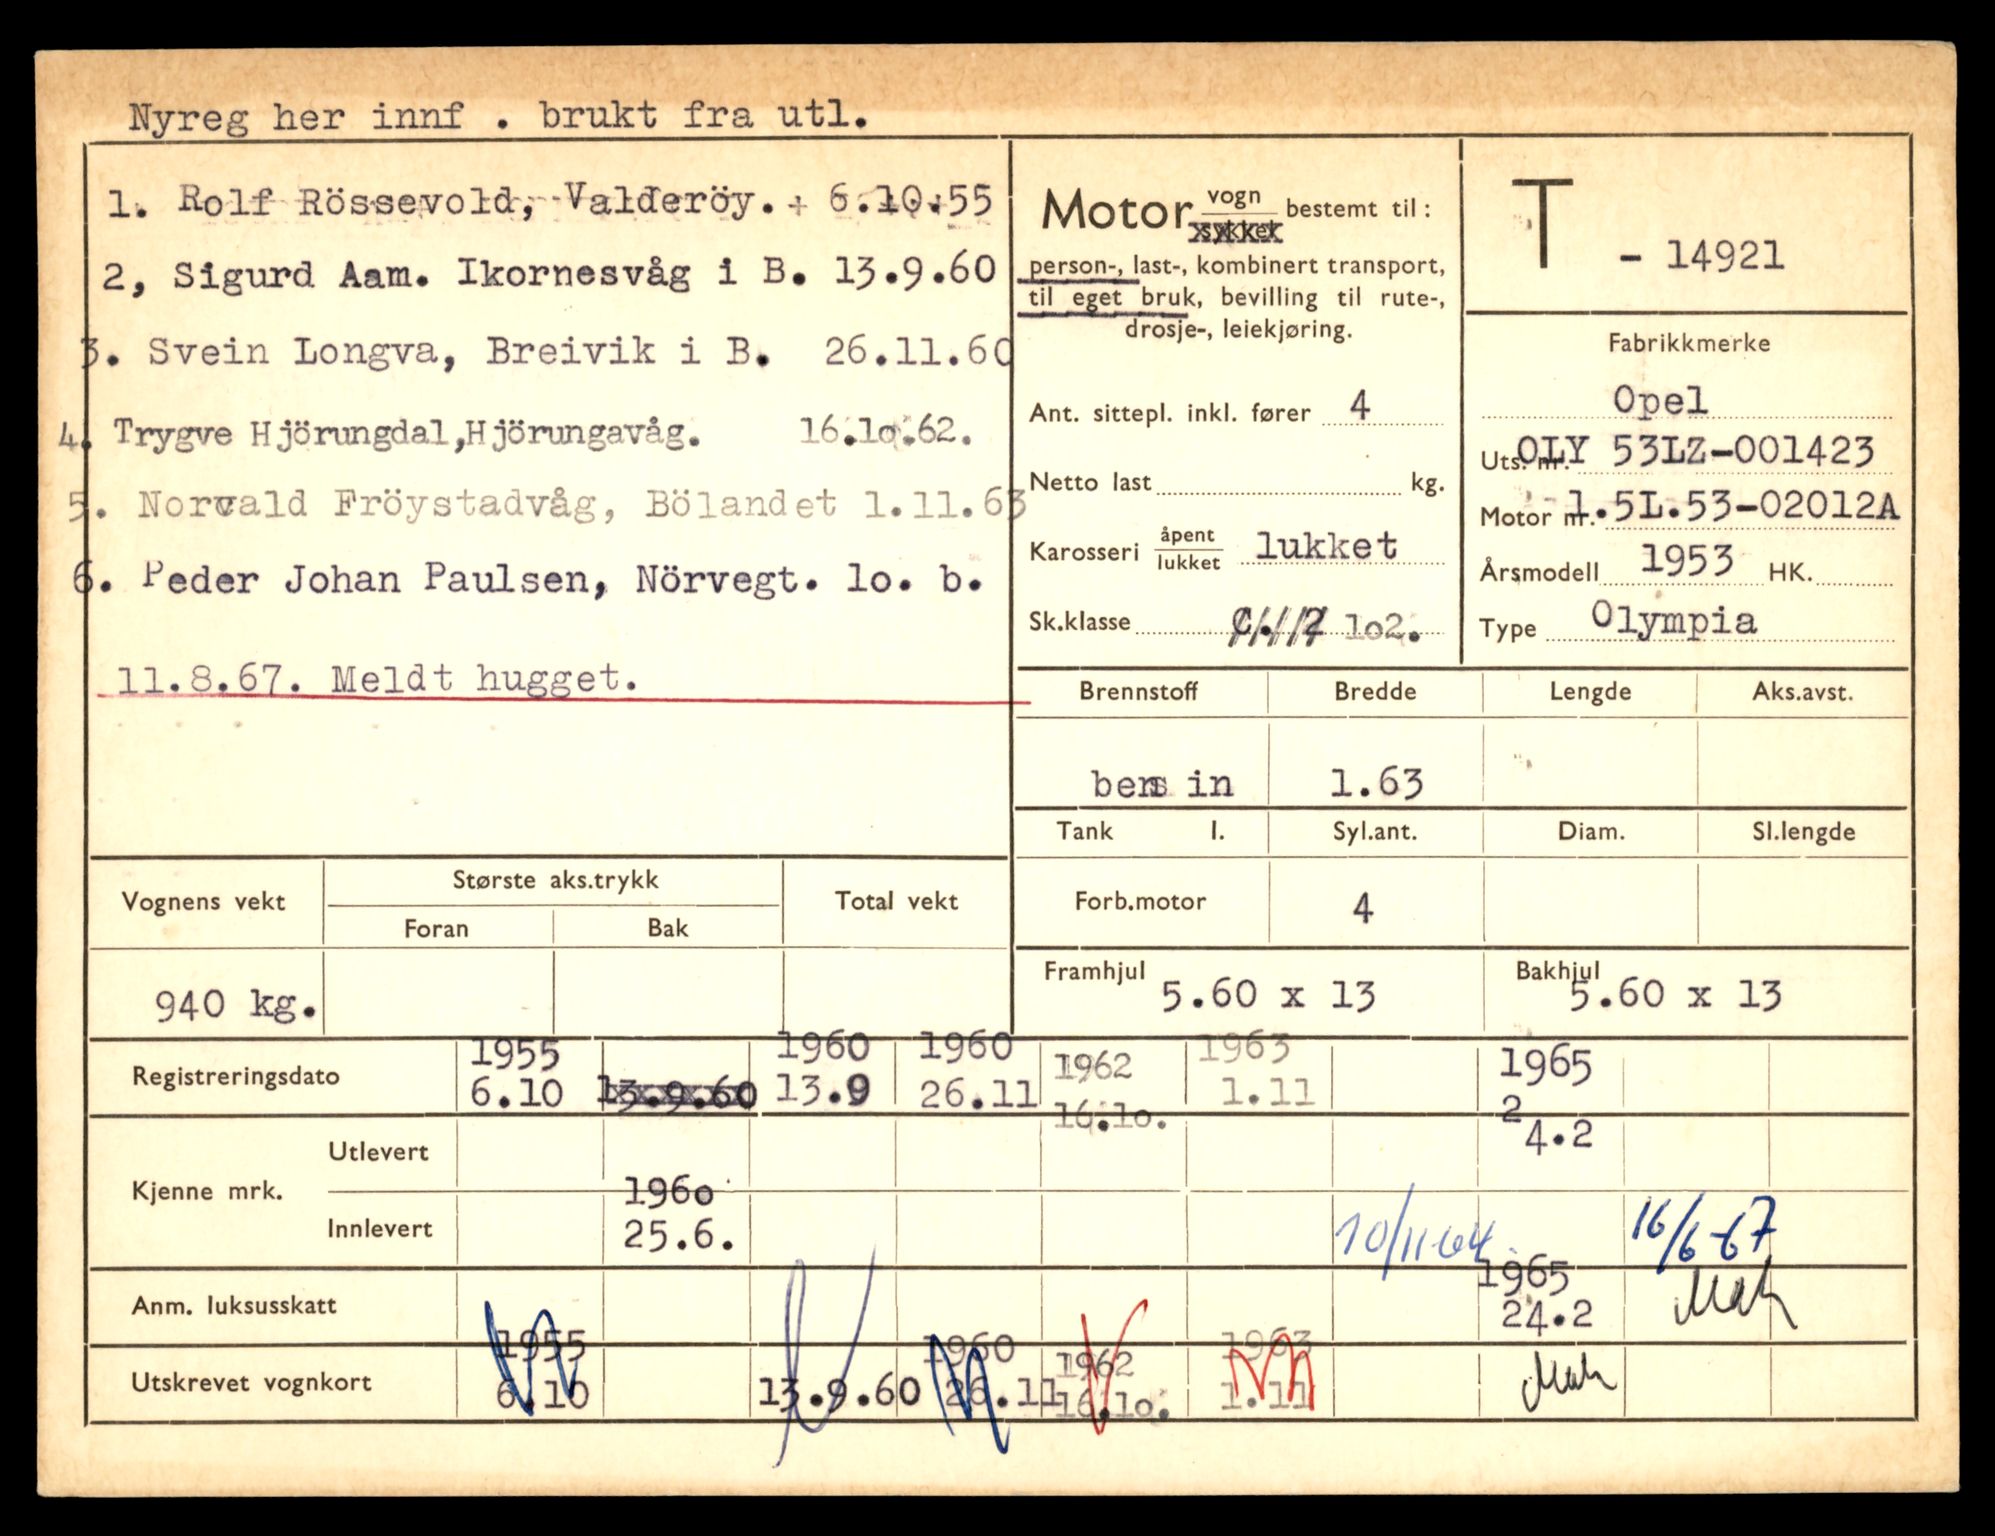 Nyreg her innf . brukt fra utl.
1. Rolf Rössevold, Valderöy. + 6.10.55
2, Sigurd Aam. Ikornesvåg i B. 13.9.60
3. Svein Longva, Breivik i B. 26.11.60
4. Trygve Hjörungdal,Hjörungavåg. 16.lo.62.
5. Norvald Fröystadvåg, Bölandet 1.11.63
6. Peder Johan Paulsen, Nörvegt. lo. b.
11.8.67. Meldt hugget.
Motor vogn bestemt til:
sykkel
person-, last-, kombinert transport,
til eget bruk, bevilling til rute-,
drosje-, leiekjøring.
Ant. sittepl. inkl. fører 4
Netto last kg.
Karosseri åpent lukket
lukket
Sk.klasse lo2.
T - 14921
Fabrikkmerke
Opel
Uts. nr. OLY 53LZ-001423
Motor nr. 1.5L.53-02012A
Årsmodell 1953 HK.
Type Olympia
Brennstoff Bredde Lengde Aks.avst.
bensin 1.63
Tank l. Syl.ant. Diam. Sl.lengde
Forb.motor 4
Framhjul 5.60 x 13 Bakhjul 5.60 x 13
Vognens vekt Største aks.trykk Total vekt
Foran Bak
940 kg.
1955 1960 1960 1962 1963 1965
Registreringsdato 6.10 13.9.60 13.9 26.11 16.lo. 1.11 24.2
Kjenne mrk. Utlevert
Innlevert 1960 25.6. 10/11-64 16/6-67
Anm. luksusskatt 1965 24.2
1955 1960 1962 1963
Utskrevet vognkort 6.10 13.9.60 26.11 16.lo. 1.11